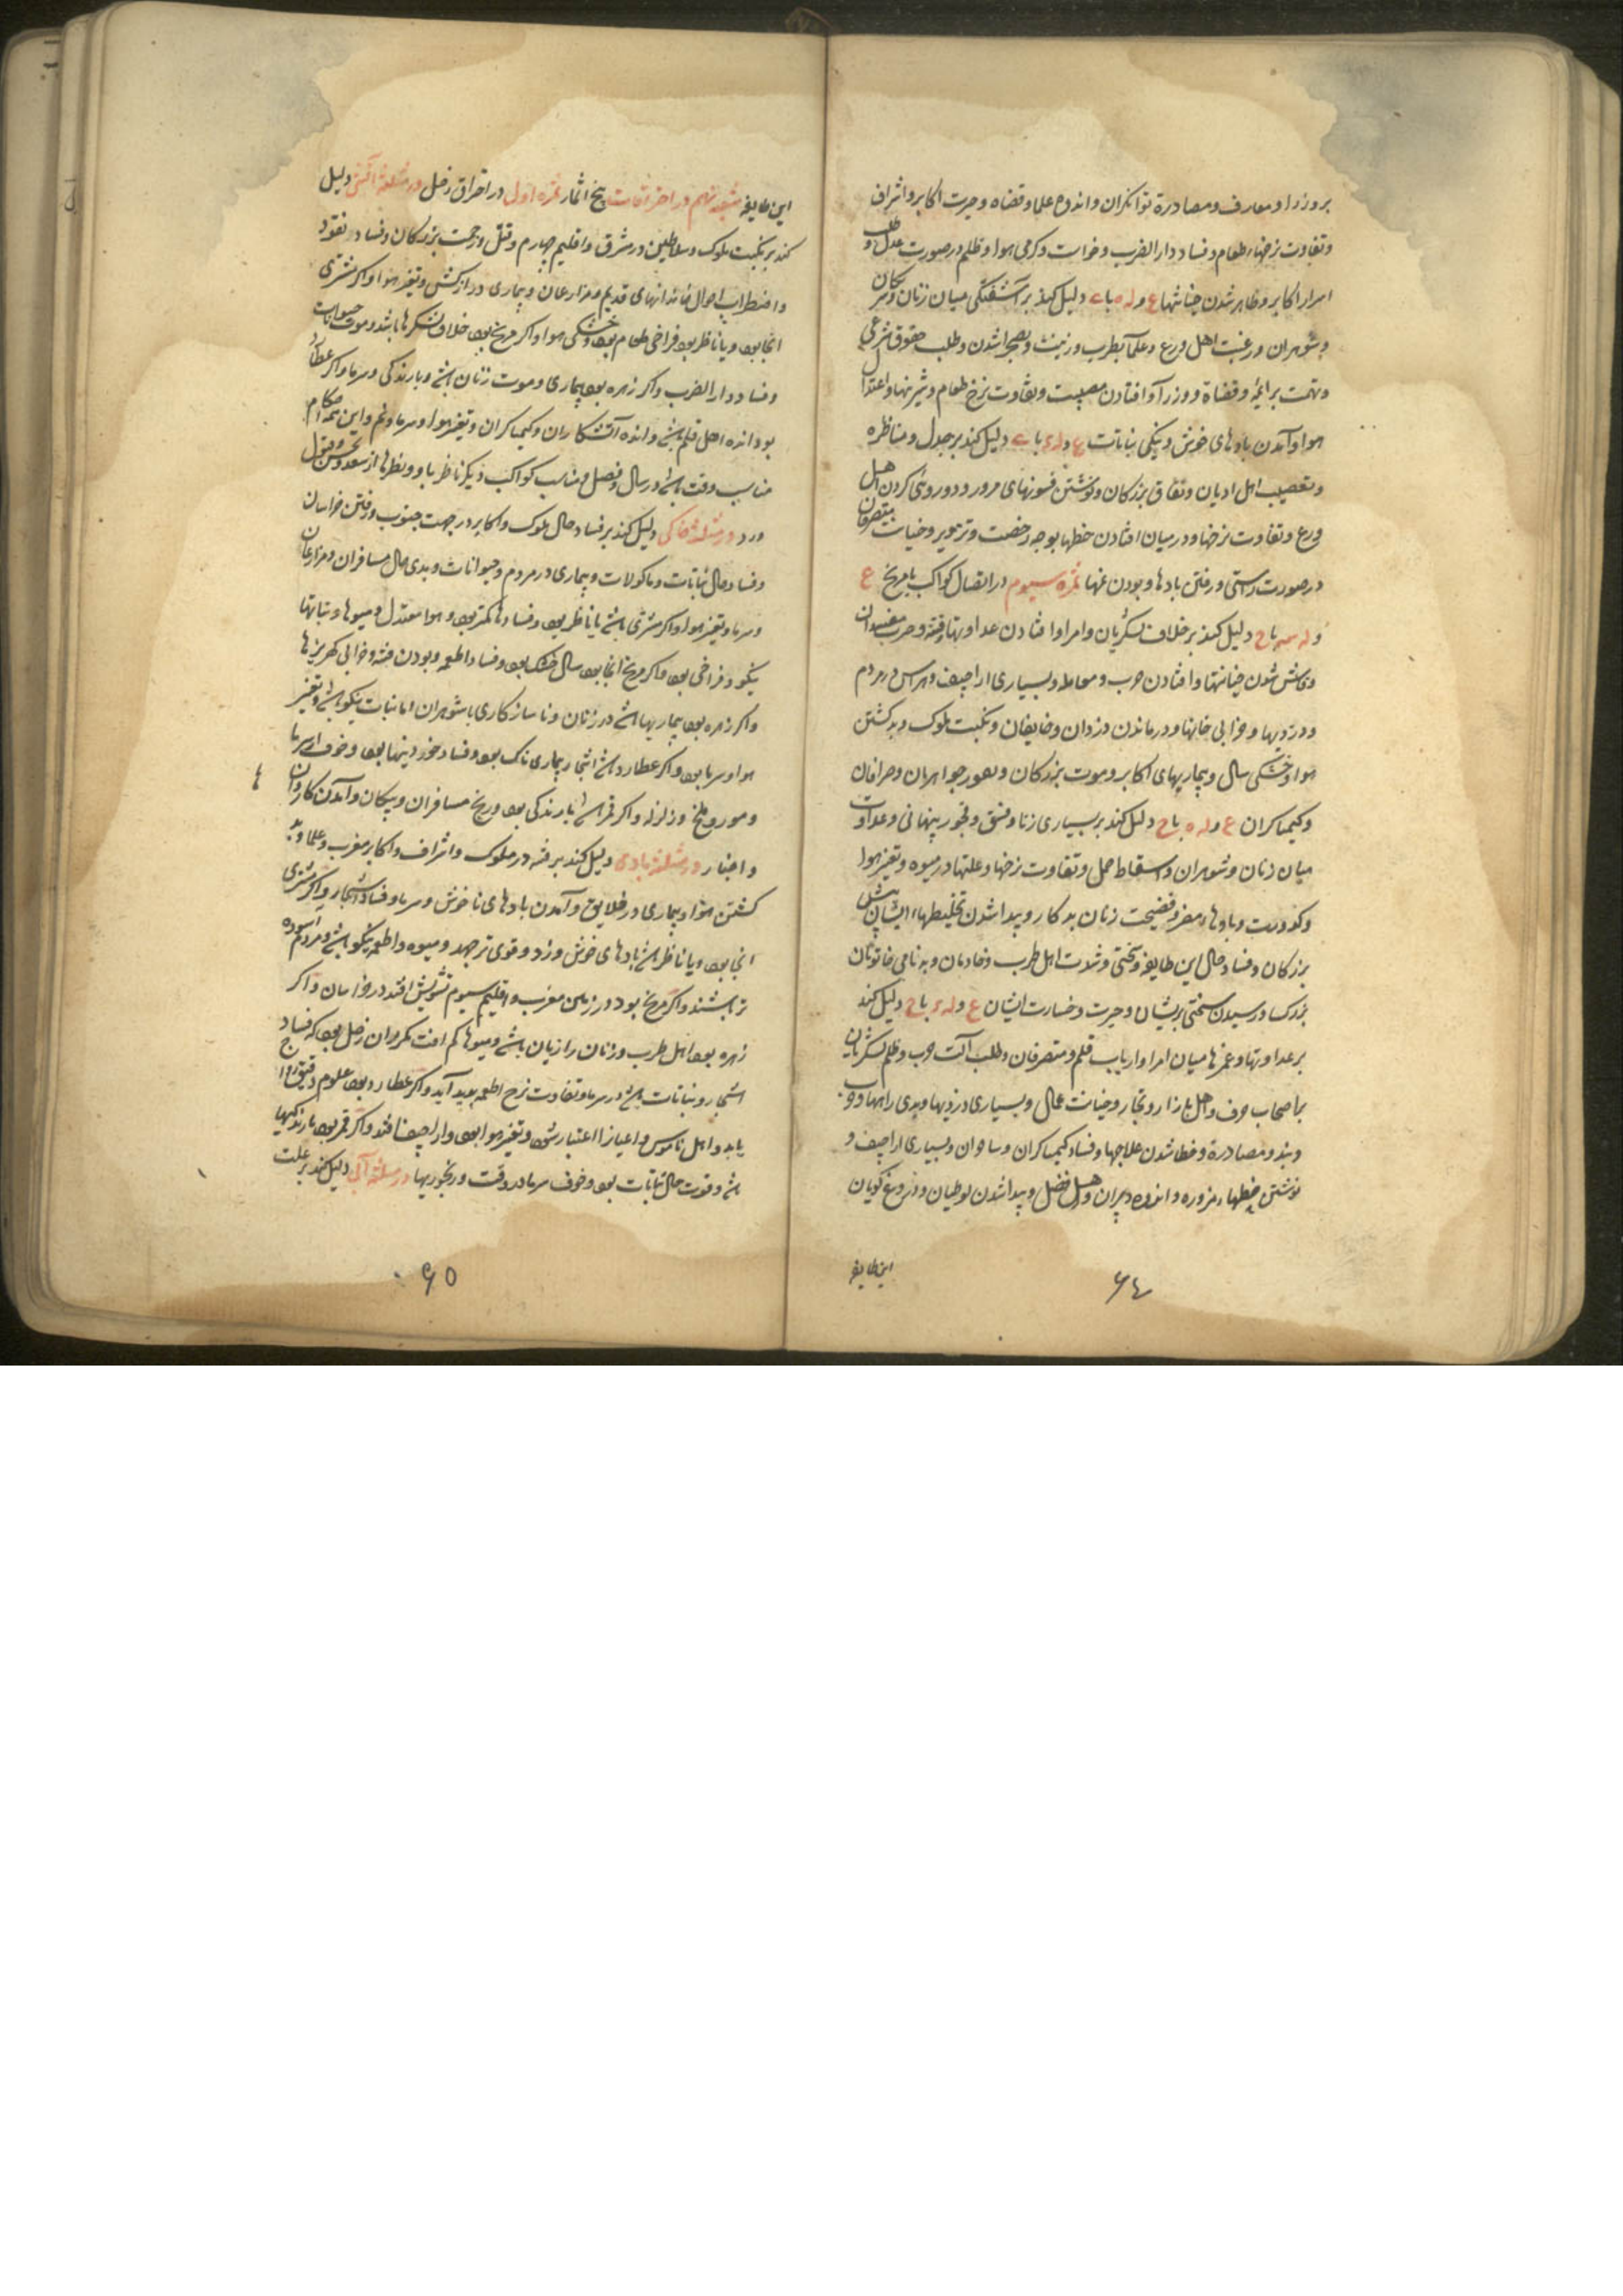 بر وزرا و معارف و مصادرهٔ توانکران و اندوه علما و قضاه و حیرت اکابر و اشراف
و تفاوت نرخها اطعام و فساد دار الضرب و گرمی هوا و ظلم در صورت عدل و
اسرار اکابر و ظاهر شدن خیانتها ع و له ه با دلیل کند بر آشفتگی میان زنان و
و شوهران و رغبت اهل ورع و علما بطرب و زینت و بصحرا شدن و طلب حقوق شرعی
و تهمت بر ایمه و قضاة و وزرا و افتادن مصیبت و تفاوت نرخ طعام و شیرینها و اعتدال
هوا و آمدن بادهای خوش و نیکی نباتات ع و له با دلیل کند بر جدل و مناظره
و تعصب اهل ادیان و نفاق بزرکان و نوشتن فسونهای مرور و دوروئی کردن اهل
ورع و تفاوت نرخها و در میان افتادن خطها بوجه رخصت و تزویر و خیانت متصرفان
در صورت راستی و رفتن بادها و بودن نمها ثمره سیوم در اتصال کواکب با مریخ ع
و له با ح دلیل کند بر خلاف لشکریان و امرا و افتادن عداوتها و فتنه و حرب مفسدان
و فاش شدن خیانتها و افتادن حرب و بسیاری اراجیف و هراس در مردم
و دزدیها و خرابی خانها و درماندن دزدان و خایفان و نکبت ملوک و بد کشتن
هوا و خشکی سال و بیماریهای اکابر و موت بزرکان و جواهریان و صرافان
و کیمیاکران ع و له ه با ح دلیل کند بر بسیاری زنا و فسق و فجور پنهانی و عداوت
میان زنان و شوهران و اسقاط حمل و تفاوت نرخها و علتها در میوه و تغیر هوا
و کدورت و بادهاء مضر و فضیحت زنان بدکار و پیدا شدن تخلیطهاء ایشان پیش
بزرکان و فساد حال این طایفه و سختی و شدت اهل طرب و خادمان و بدنامی خاتونان
بزرک و رسیدن سختی بریشان و حیرت و خسارت ایشان ع و له با ح دلیل کند
بر عداوتها و غمزها میان امرا و ارباب قلم و متصرفان و طلب آلت حرب و ظلم لشکریان
بر اصحاب حرف و اهل بازار و تجار و خیانت عمال و بسیاری دزدیها و بدی راهها و
و بند و مصادرة و خطا شدن علاجها و فساد کیمیاکران و ساحران و بسیاری اراجیف و
نوشتن خطهاء مزوره و اندوه دبیران و اهل فضل و پیدا شدن لوطیان و دروغ کویان
این طایفه
۶٤
این طایفه شعبه نهم در احتراقات پنج اثمار ثمره اول در احتراق زحل در مثلثه آتشی دلیل
کند بر نکبت ملوک و سلاطین در مشرق و اقلیم چهارم و قتل و زحمت بزرکان و فساد نقود
و اضطراب احوال خاندانهای قدیم و مزارعان و بیماری دراز کشش و تغیر هوا و اکر مشتری
انجا بود و یا ناظر بود فراخی طعام بود و خشکی هوا و اکر مریخ بود خلاف لشکرها باشد و موت حیوانات
و فساد دار الضرب و اکر زهره بود بیماری و موت زنان باشد و بارندکی و سرما و اکر عطارد
بود اندوه اهل قلم باشد و اندوه آتشکاران و کیمیاکران و تغیر هوا و سرما و نم و این احکام
مناسب وقت باشد در سال و فصل و مناسب کواکب دیکر ناظر با او و نظرها از سعد و نحس و قبول
ورد در مثلثه خاکی دلیل کند بر فساد حال ملوک و اکابر در جهت جنوب و رفتن خراسان
و فساد حال نباتات و ماکولات و بیماری در مردم و حیوانات و بدی حال مسافران و مزارعان
و سرما و تغیر هوا و اکر مشتری باشد یا ناظر بود و فسادها کمتر بود و هوا معتدل و میوها و نباتها
نیکو و فراخی بود و اکر مریخ انجا بود سال خشک بود و فساد اطعمه و بودن فتنه و خرابی کهریزها
و اکر زهره بود بیماریها باشد در زنان و ناسازکاری با شوهران اما نبات نیکو باشد و تغییر
هوا و سرما بود و اکر عطارد باشد اشجار بیماری ناک بود و فساد خوردنیها بود و خوف از سرما
و مور و ملخ و زلزله و اکر قمر باشد بارندکی بود و رنج مسافران و پیکان و آمدن کاروانها
و اخبار در مثلثه بادی دلیل کند بر فتنه در ملوک و اشراف و اکابر مغرب و علما و بد
کشتن هوا و بیماری در خلایق و آمدن بادهای ناخوش و سرما و فساد اشجار و اکر مشتری
انجا بود و یا ناظر باشد بادهای خوش وزد و قوی تر جهد و میوه و اطعمه نیکو باشد و مردم آسوده
تر باشند و اکر مریخ بود در زمین مغرب و اقلیم سیوم تشویش افتد در خراسان و اکر
زهره بود اهل طرب و زنان را زیان باشد و میوها کم افت مکر وران زحل بود که فساد
اشجار و نباتات باشد در سرما و تفاوت نرخ اطعمه پدید آید و اکر عطارد بود علوم دقیق
یابد و اهل ناموس و اعیان را اعتبار شود و تغیر هوا بود و اراجیف افتد و اکر قمر بود بارندکیها
باشد و قوت حال نباتات بود و خوف سرما در وقت و رنجوریها در مثلثه آبی دلیل کند بر علت
۶۵